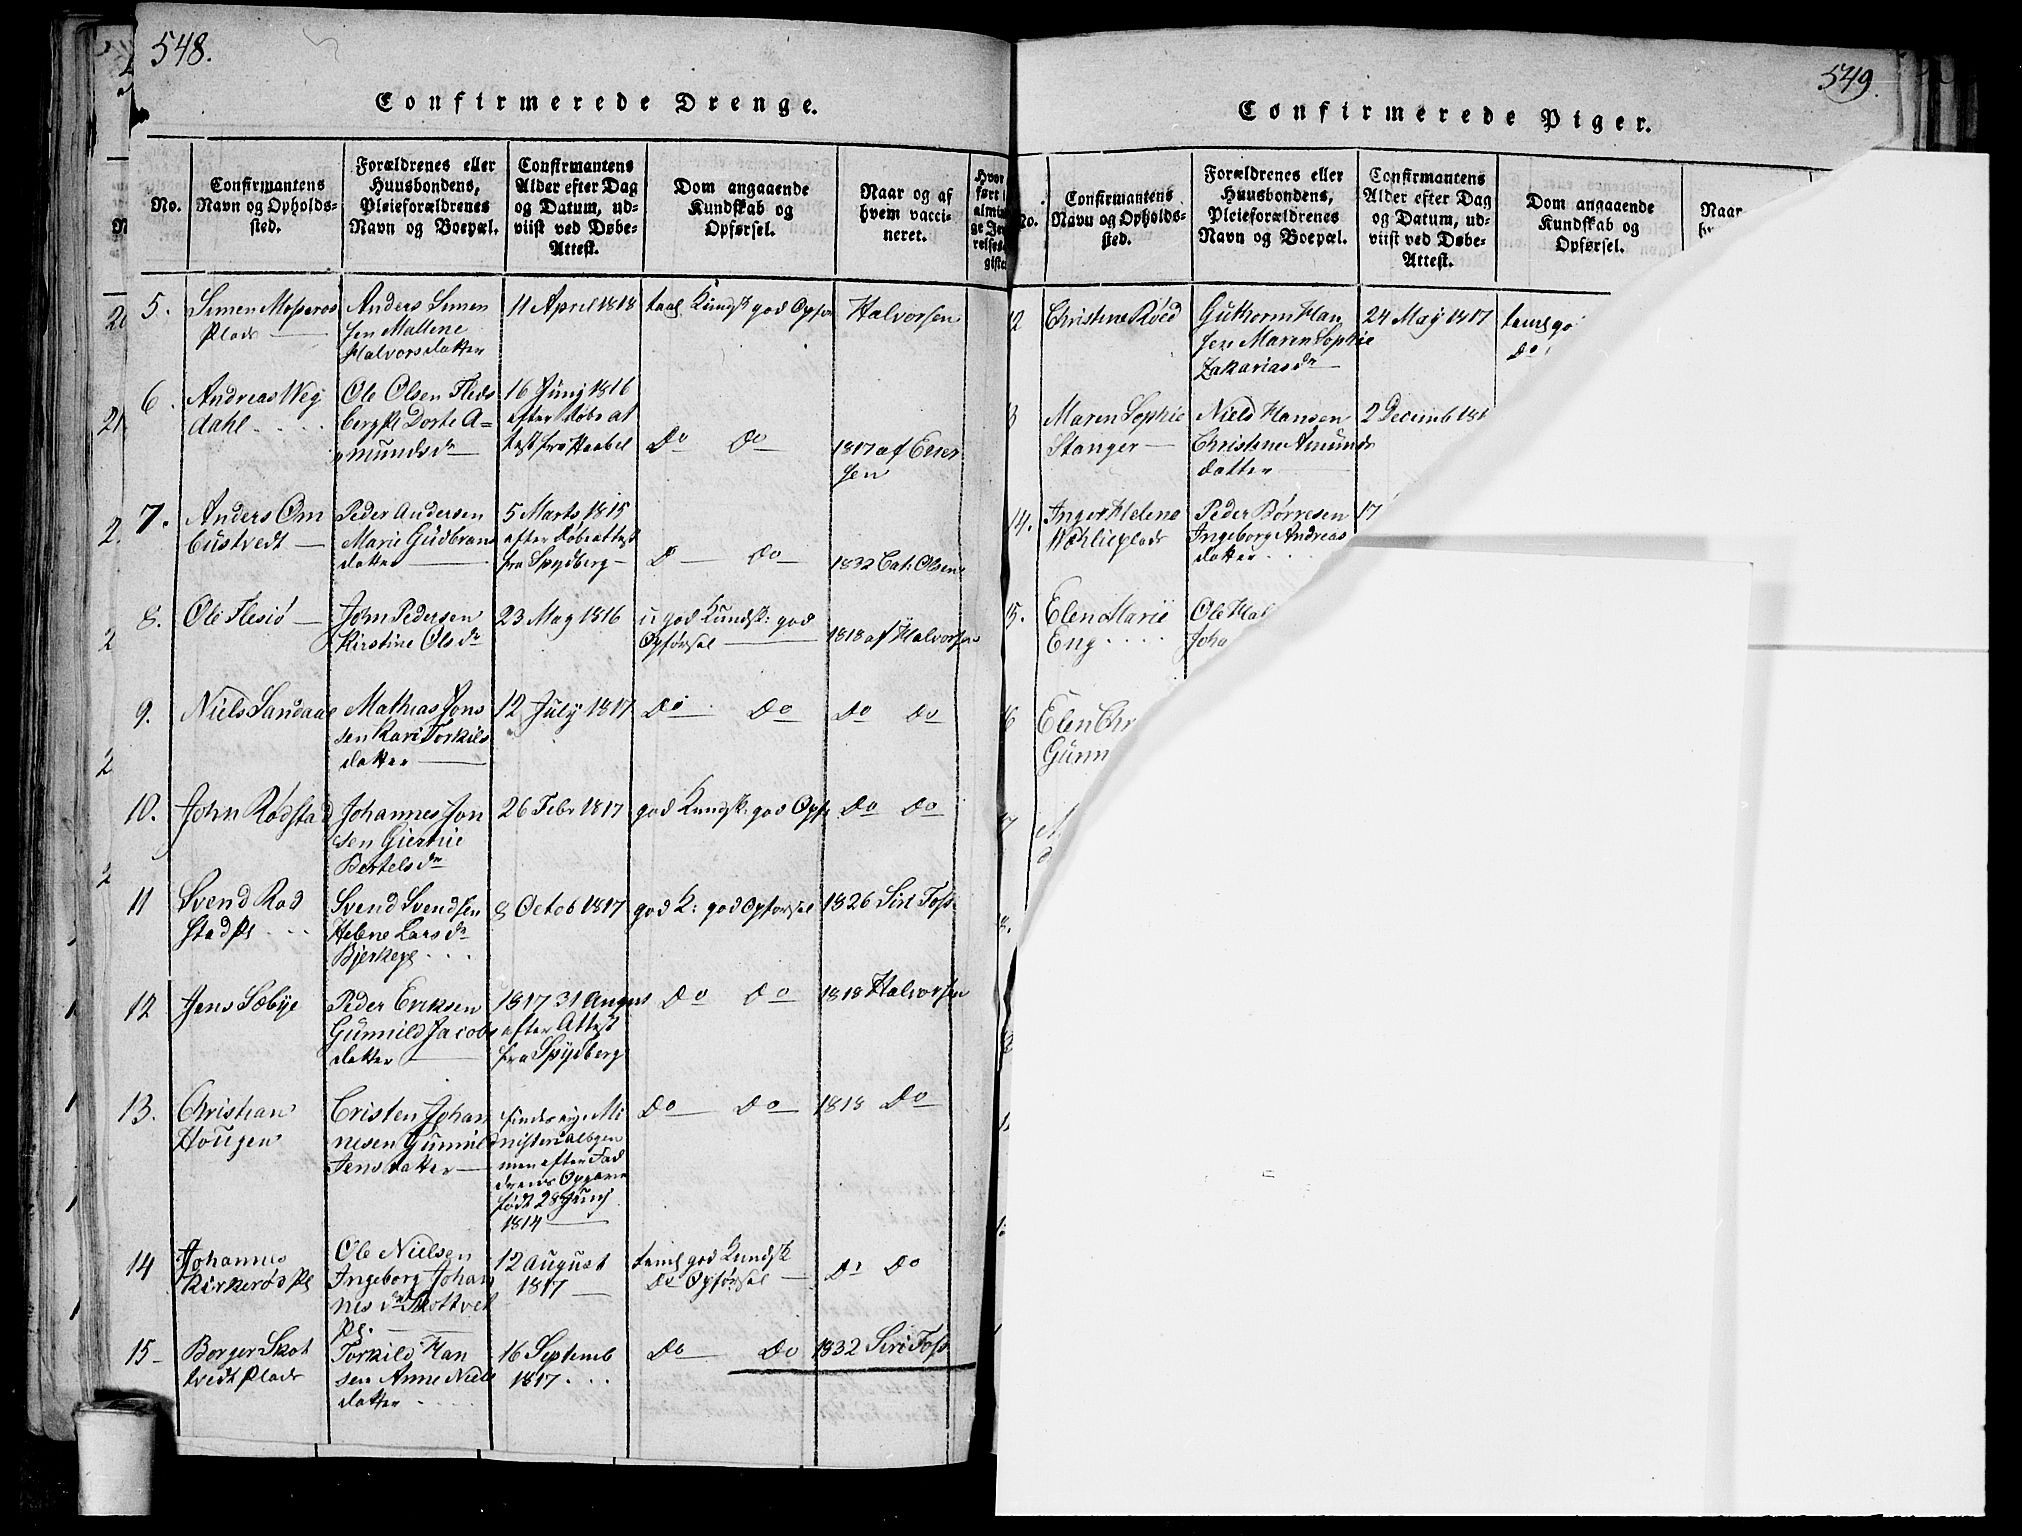 548.
Confirmerede Drenge.
No.
Confirmantens
Navn og Opholds-
sted.
Forældrenes eller
Huusbondens,
Pleieforældrenes
Navn og Boepæl.
Confirmantens
Alder efter Dag
og Datum, ud-
viist ved Døbe-
Attest.
Dom angaaende
Kundskab og
Opførsel.
Naar og af
hvem vacci-
neret.
5.
Simen
Plads
Anders Simen
sen Mallene
Halvorsdatter
11 April 1818
taal Kundsk god Opfør
Halvorsen
6.
Andreas Weg
dahl
Ole Olsen Fleds
berg Dorte A-
mundsdr
16 Junj 1816
efter Døbeat
test fra Haabel
Do Do
1817 af Ener
sen
7.
Anders Om
custvedt
Peder Andersen
Marie Gudbrans
datter
5 Marts 1815
efter Døbeattest
fra Spydberg
D Do
1832 Cat. Olsen
8.
Ole Flesiø
John Pedersen
Kirstine Olsdr
23 May 1816
u god Kundsk: god
Opførsel
1818 af Halvorsen
9.
Niels Sandaae
Mathias Jons
sen Kari Torkils
datter
12 July 1817
Do Do
Do Do
10.
John Rødstad
Johannes Jon
sen Giertrue
Bertelsdr
26 Febr 1817
god Kundsk: god Opf
Do Do
11
Svend Rød
stad Pl
Svend Svendsen
Helene Larsdr
Bjerkepl
8 Octob 1817
god K: god Opførsel
1826 Siri Foss
12
Jens Sæbye
Peder Eriksen
Gunnild Jacobs
datter
1817 31 Augus
efter Attest
fra Spydberg
Do Do
1818 Halvorsen
13.
Christian
Hougen
Cristen Johan
nesen Gunnild
Jensdatter
findes ej i Mi
nisterialbogen
men efter Fad
drenes Opgave
født 28 Junj
1814
Do Do
1818 Do
14
Johannes
Kirkerød Pl
Ole Nielsen
Ingeborg Johan
nesdr Skottvet
Pl.
12 August
1817
teml god Kundsk
Do Opførsel
Do Do
15
Borger Skot
tvedt Plads
Torkild Han
sen Anne Niels
datter
16 Septemb
1817
Do Do
1832 Siri Foss
549.
Confirmerede Piger.
No.
Confirmantens
Navn og Opholds-
sted.
Forældrenes eller
Huusbondens,
Pleieforældrenes
Navn og Boepæl.
Confirmantens
Alder efter Dag
og Datum, ud-
viist ved Døbe-
Attest.
Dom angaaende
Kundskab og
Opførsel.
Naar
Christine Røed
Guthorm Han
sen Maren Sophie
Zakariasdr
24 May 1817
Maren Sophie
Stanger
Niels Hansen
Christine Amunds
datter
2 Decemb
14.
Inger Helene
Wøhlieplads
Peder Børresen
Ingeborg Andreas
datter
17
15.
Elen Marie
Eng
Ole
Joha
16
Elen Chr
Gunn